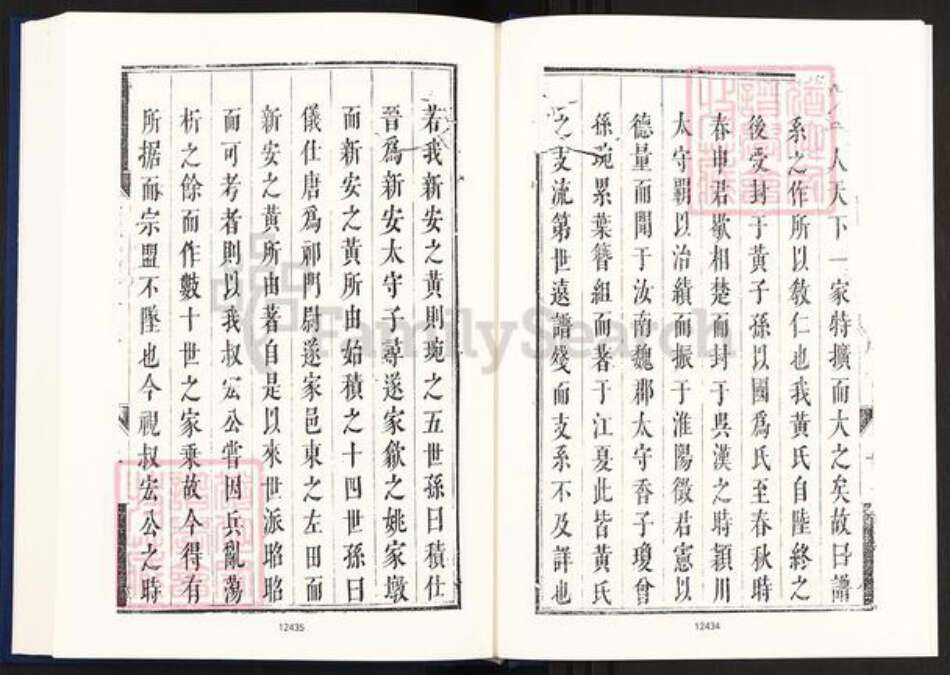 人天下一家特擴而大之矣故曰譜
系之作所以敎仁也我黃氏自陸終之
後受封于黃子孫以國爲氏至春秋時
春申君歇相楚而封于吳漢之時穎川
太守霸以治績而振于淮陽徵君憲以
德量而聞于汝南魏郡太守香子瓊曾
孫琬累葉簪組而著于江夏此皆黃氏
之支流第世遠譜殘而支系不及詳也
12434
若我新安之黃則琬之五世孫曰積仕
晉爲新安太守子尋遂家歙之姚家墩
而新安之黃所由始積之十四世孫曰
儀仕唐爲祁門尉遂家邑東之左田而
新安之黃所由著自是以來世派昭昭
而可考者則以我叔宏公嘗因兵亂蕩
析之餘而作數十世之家乘故今得有
所据而宗盟不墜也今視叔宏公之時
12435
FamilySearch